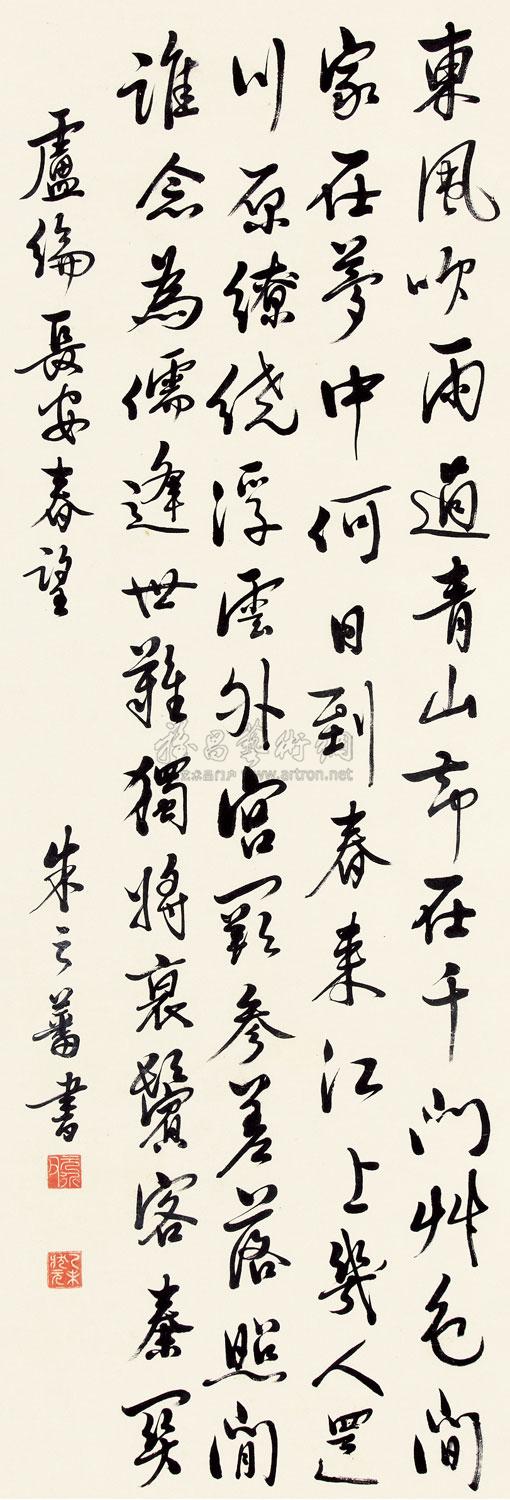 東風吹雨過青山却在千門艸色閒
家在夢中何日到春來江上幾人還
川原繚繞浮雲外宮闕參差落照閒
誰念為儒逢世難獨將衰鬢客秦關
盧綸長安春望
朱之蕃書
乙未狀元
雅昌藝術網
艺术品门户 www.artron.net